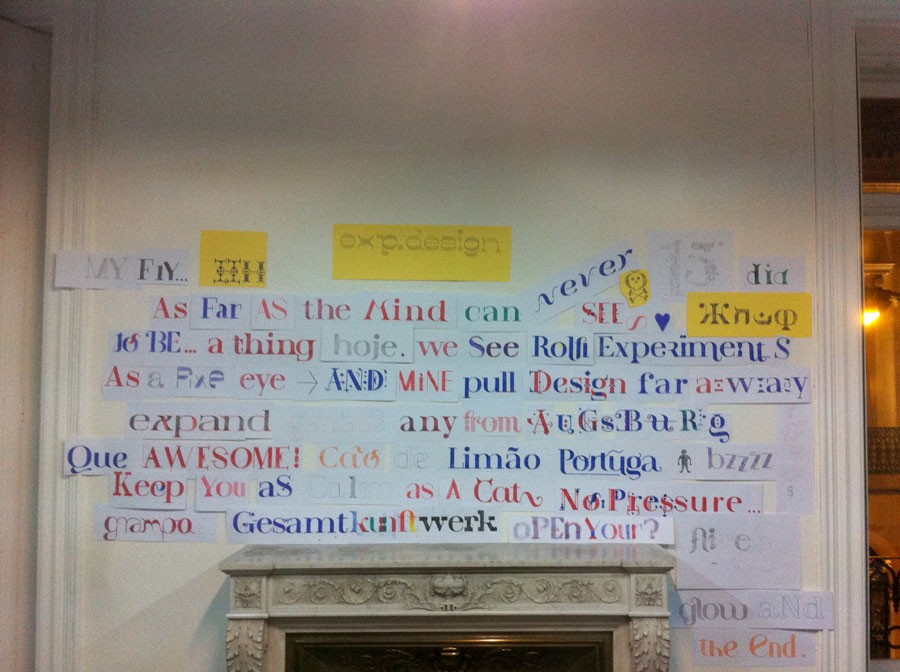 exp.design
MY FlY... never 15 did
As Far AS the Mind can SEE Жпшф
to BE... a thing hoje. we See Rolfi Experiment.S
As a Fixe eye → AND MiNE pull Design far away
expand any from AuGsBuRg
Que AWESOME! Cão de Limão Portuga bzzzz
Keep You aS Calm as A Cat No Pressure...
grampo Gesamtkunstwerk oPEn Your?
glow aNd
the End.